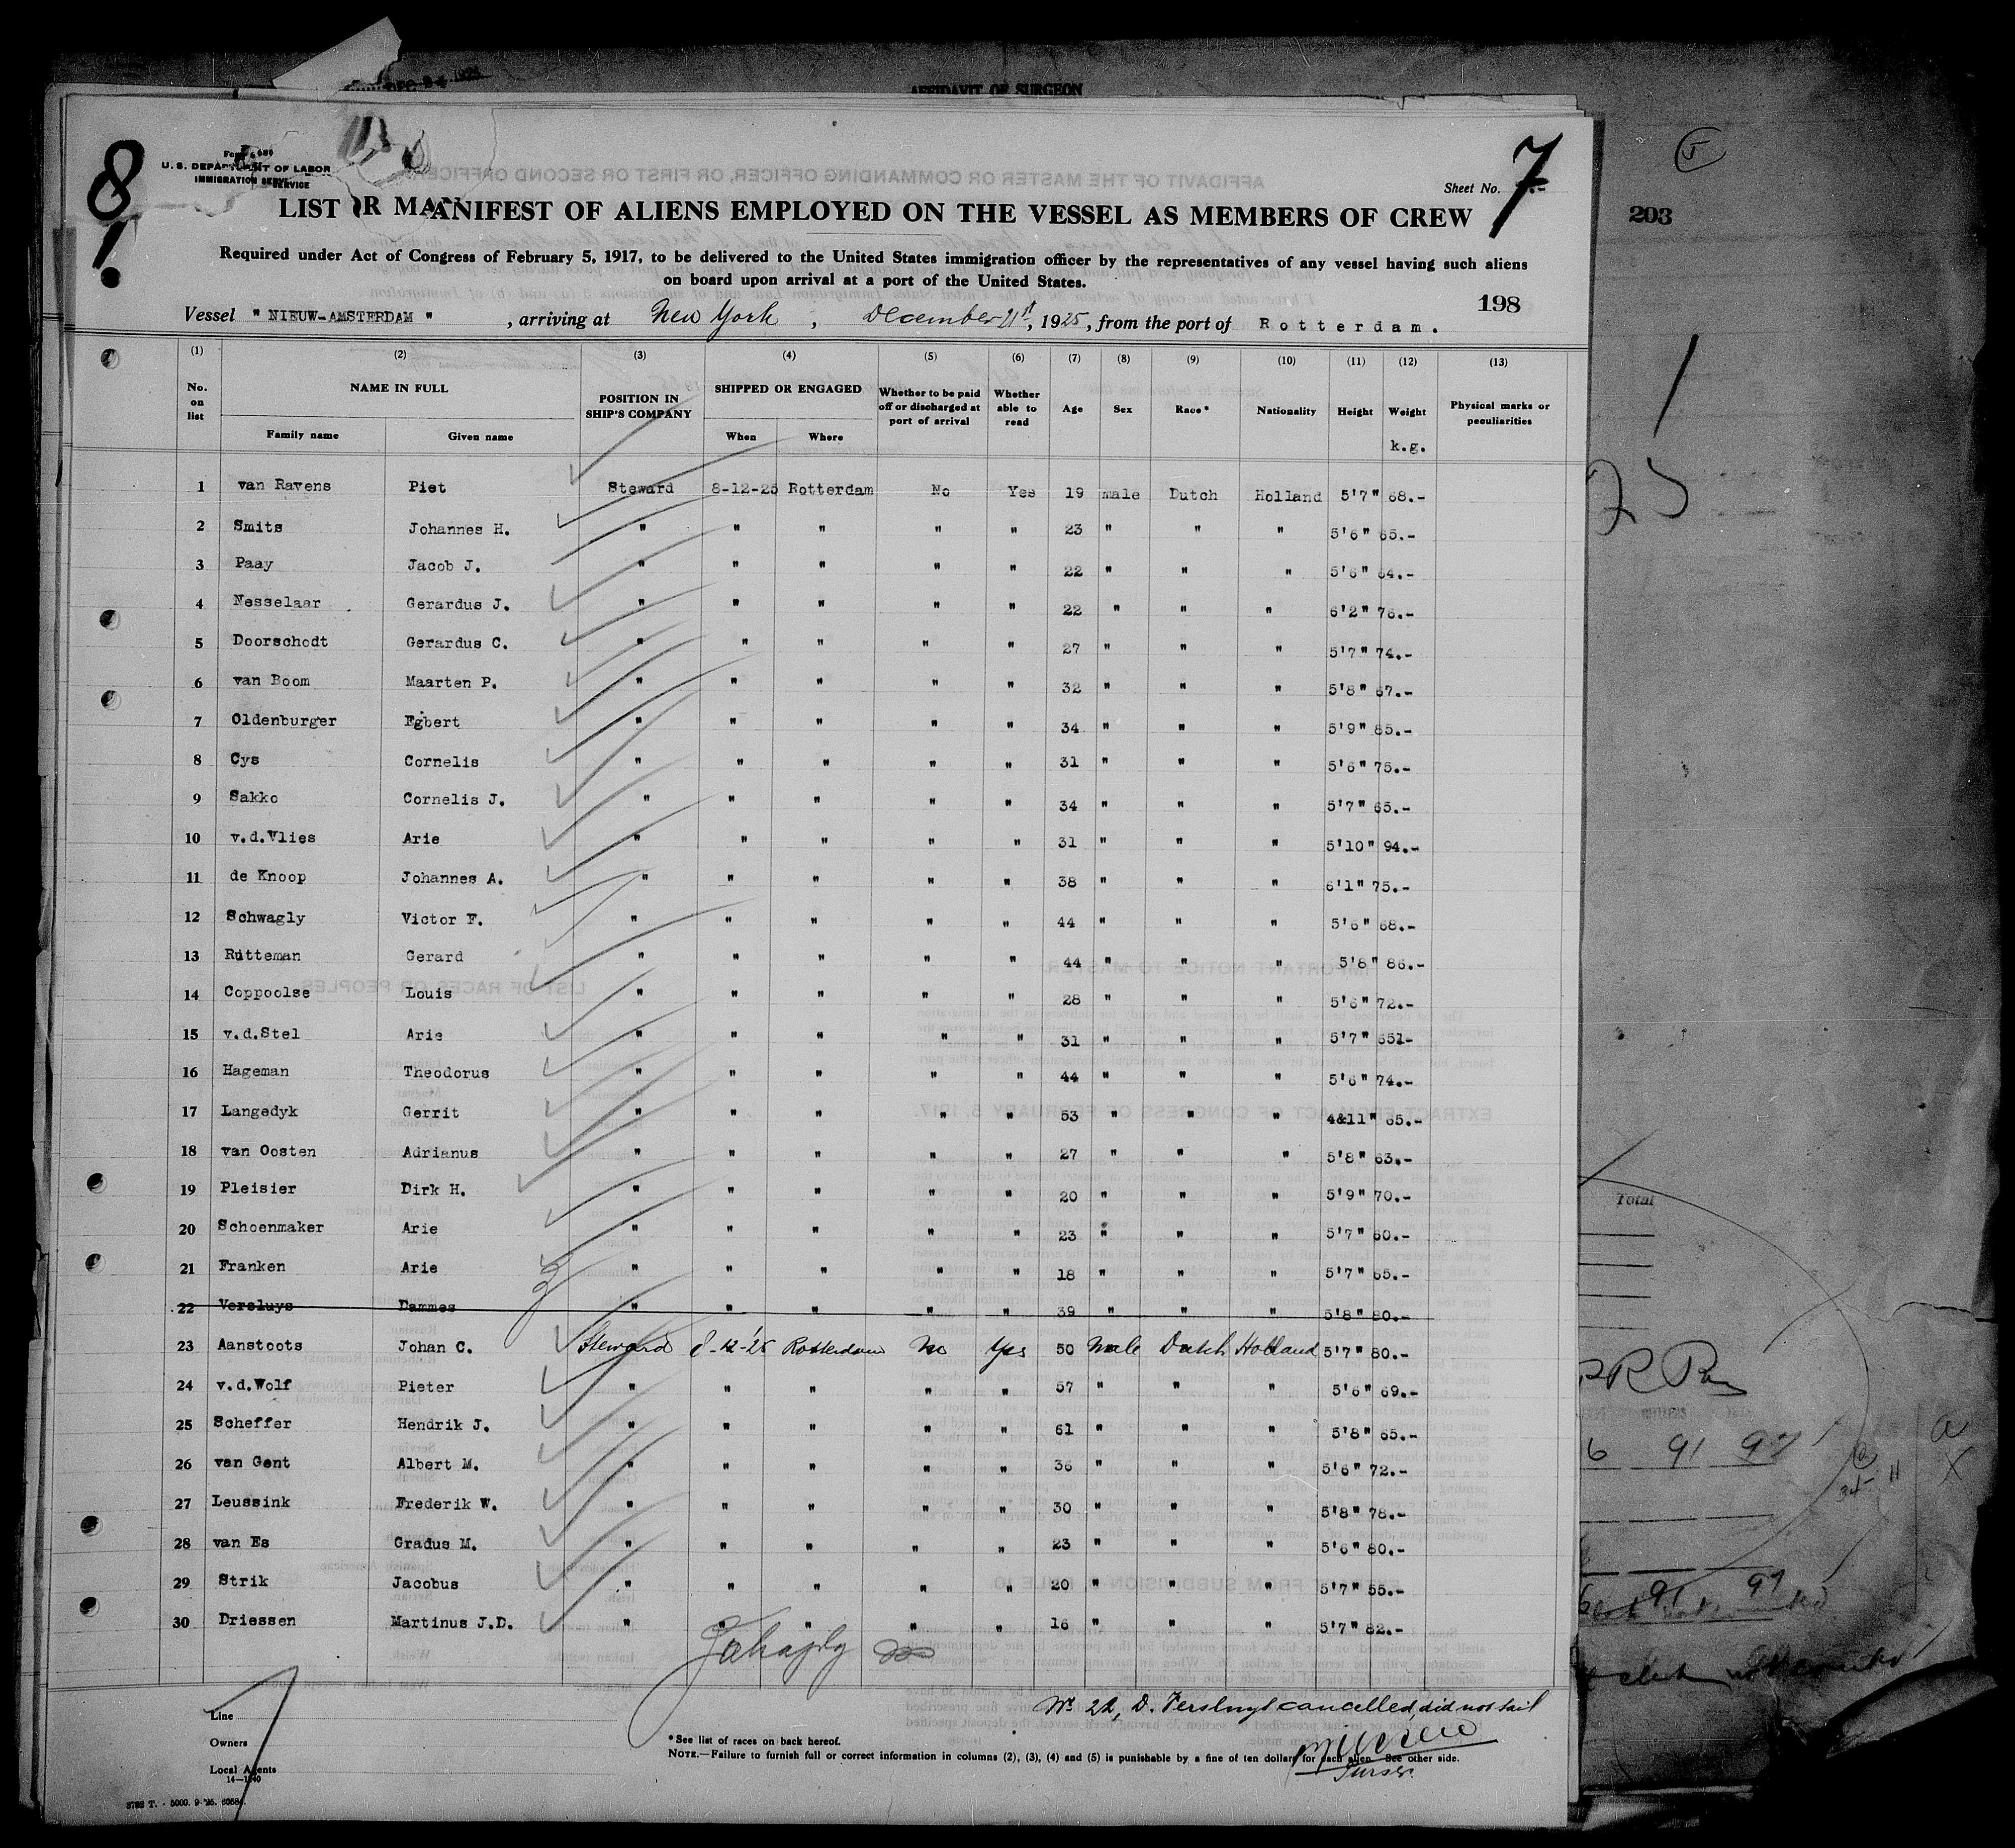 AFFIDAVIT OF SURGEON
8
7
U. S. DEPARTMENT OF LABOR
IMMIGRATION SERVICE
Sheet No.
203
LIST OR MANIFEST OF ALIENS EMPLOYED ON THE VESSEL AS MEMBERS OF CREW
Required under Act of Congress of February 5, 1917, to be delivered to the United States immigration officer by the representatives of any vessel having such aliens
on board upon arrival at a port of the United States.
198
Vessel " NIEUW-AMSTERDAM ", arriving at New York, December 21st, 1925, from the port of Rotterdam.
(1) (2) (3) (4) (5) (6) (7) (8) (9) (10) (11) (12) (13)
No. on list NAME IN FULL Family name Given name POSITION IN SHIP'S COMPANY SHIPPED OR ENGAGED When Where Whether to be paid off or discharged at port of arrival Whether able to read Age Sex Race* Nationality Height Weight k.g. Physical marks or peculiarities
1 van Ravens Piet Steward 8-12-25 Rotterdam No Yes 19 male Dutch Holland 5'7" 68.-
2 Smits Johannes H. " " " " " 23 " " " 5'6" 65.-
3 Paay Jacob J. " " " " " 22 " " " 5'6" 64.-
4 Nesselaar Gerardus J. " " " " " 22 " " " 6'2" 76.-
5 Doorschodt Gerardus C. " " " " " 27 " " " 5'7" 74.-
6 van Boom Maarten P. " " " " " 32 " " " 5'8" 67.-
7 Oldenburger Egbert " " " " " 34 " " " 5'9" 85.-
8 Cys Cornelis " " " " " 31 " " " 5'6" 75.-
9 Sakko Cornelis J. " " " " " 34 " " " 5'7" 65.-
10 v.d.Vlies Arie " " " " " 31 " " " 5'10" 94.-
11 de Knoop Johannes A. " " " " " 38 " " " 6'1" 75.-
12 Schwagly Victor F. " " " " " 44 " " " 5'6" 68.-
13 Rutteman Gerard " " " " " 44 " " " 5'8" 86.-
14 Coppoolse Louis " " " " " 28 " " " 5'6" 72.-
15 v.d.Stel Arie " " " " " 31 " " " 5'7" 65l-
16 Hageman Theodorus " " " " " 44 " " " 5'6" 74.-
17 Langedyk Gerrit " " " " " 53 " " " 4&11" 65.-
18 van Oosten Adrianus " " " " " 27 " " " 5'8" 63.-
19 Pleisier Dirk H. " " " " " 20 " " " 5'9" 70.-
20 Schoenmaker Arie " " " " " 23 " " " 5'7" 60.-
21 Franken Arie " " " " " 18 " " " 5'7" 65.-
22 Versluys Dammes " " " " " 39 " " " 5'8" 80.-
23 Aanstoots Johan C. Steward 8-12-'25 Rotterdam No Yes 50 Male Dutch Holland 5'7" 80.-
24 v.d.Wolf Pieter " " " " " 57 " " " 5'6" 69.-
25 Scheffer Hendrik J. " " " " " 61 " " " 5'8" 65.-
26 van Gent Albert M. " " " " " 36 " " " 5'6" 72.-
27 Leussink Frederik W. " " " " " 30 " " " 5'8" 78.-
28 van Es Gradus M. " " " " " 23 " " " 5'6" 80.-
29 Strik Jacobus " " " " " 20 " " " 5'7" 55.-
30 Driessen Martinus J.D. " " " " " 16 " " " 5'7" 82.-
No 22, D. Versluys cancelled, did not sail
Purser.
Line
Owners
Local Agents
14—1240
*See list of races on back hereof.
NOTE.—Failure to furnish full or correct information in columns (2), (3), (4) and (5) is punishable by a fine of ten dollars for each alien. See other side.
Total
91 97
91 97